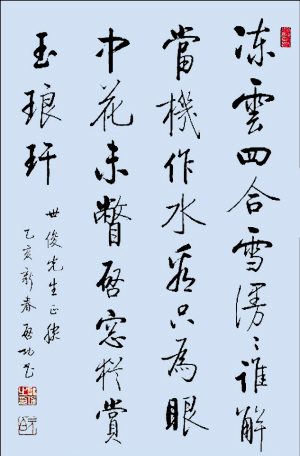 凍雲四合雪漫〻誰解
當機作水看只為眼
中花未瞥啓窓猶賞
玉琅玕
世俊先生正腕
乙亥新春啓功